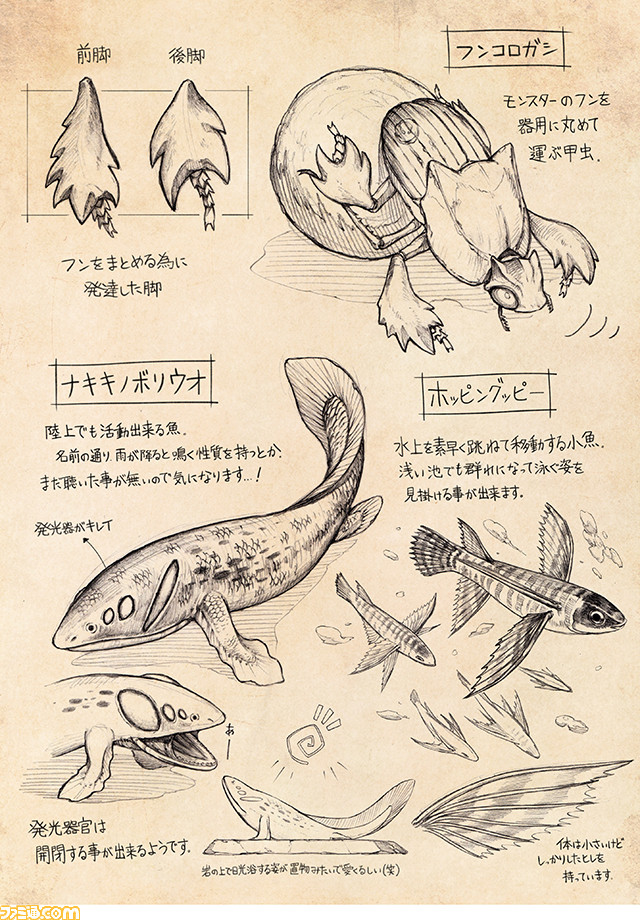 前脚
後脚
フンをまとめる為に
発達した脚
フンコロガシ
モンスターのフンを
器用に丸めて
運ぶ甲虫.
ナキキノボリウオ
陸上でも活動出来る魚.
名前の通り、雨が降ると鳴く性質を持つとか.
まだ聴いた事が無いので気になります...!
発光器がキレイ
あー
発光器官は
開閉する事が出来るようです.
岩の上で日光浴する姿が置物みたいで愛くるしい(笑)
ホッピングッピー
水上を素早く跳ねて移動する小魚.
浅い池でも群れになって泳ぐ姿を
見掛ける事が出来ます.
体は小さいけど
しっかりしたヒレを
持っています.
ファミ通.com